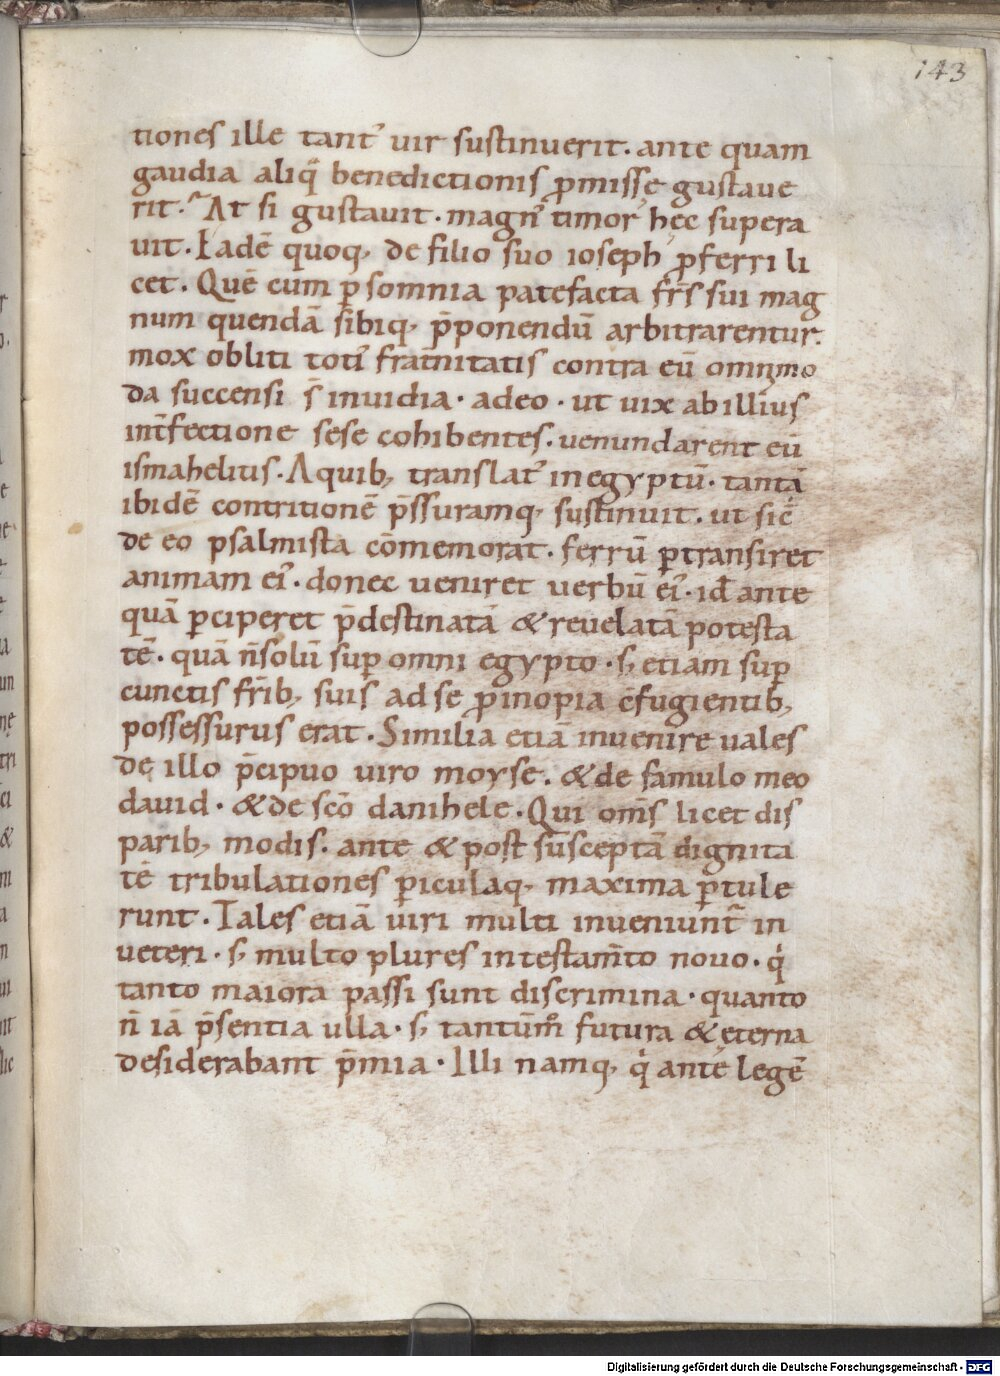 143
tiones ille tantꝰ uir sustinuerit. ante quam
gaudia aliq̄ benedictionis ꝓmissę gustaue
rit. At si gustauit. magnꝰ timor hęc supera
uit. Eadē quoq; de filio suo ioseph ꝓferri li
cet. Quē cum ꝑ somnia patefacta fr̄s sui mag
num quendā sibiq; p̄ponendū arbitrarentur.
mox obliti totiꝰ frat̄nitatis contra eū omnimo
da succensi s̄ inuidia. adeo. ut uix ab illius
int̄fectione sese cohibentes. uenundarent eū
ismahelitis. A quib; translatꝰ in egyptū. tantā
ibidē contritionē p̄ssuramq; sustinuit. ut sic̄
de eo psalmista cōmemorat. ferrū ꝑtransiret
animam eiꝰ. donec ueniret uerbū eiꝰ. id̄ ante
quā ꝑciperet p̄destinatā & reuelatā potesta
tē. quā n̄ solū suꝑ omni egypto. s; etiam suꝑ
cunctis fr̄ib; suis ad se ꝓ inopia c̄fugientib;
possessurus erat. Similia etiā inuenire uales
de illo p̄cipuo uiro moyse. & de famulo meo
dauid. & de sc̄o danihele. Qui om̄s licet dis
parib; modis. ante & post susceptā dignita
tē tribulationes ꝑiculaq; maxima ꝑtule
runt. Tales etiā uiri multi inueniunt̄ in
ueteri. s; multo plures in testam̄to nouo. qͥ
tanto maiora passi sunt discrimina. quanto
n̄ iā p̄sentia ulla. s; tantūm̄ futura & eterna
desiderabant p̄mia. Illi namq; qͥ ante legē
Digitalisierung gefördert durch die Deutsche Forschungsgemeinschaft - DFG